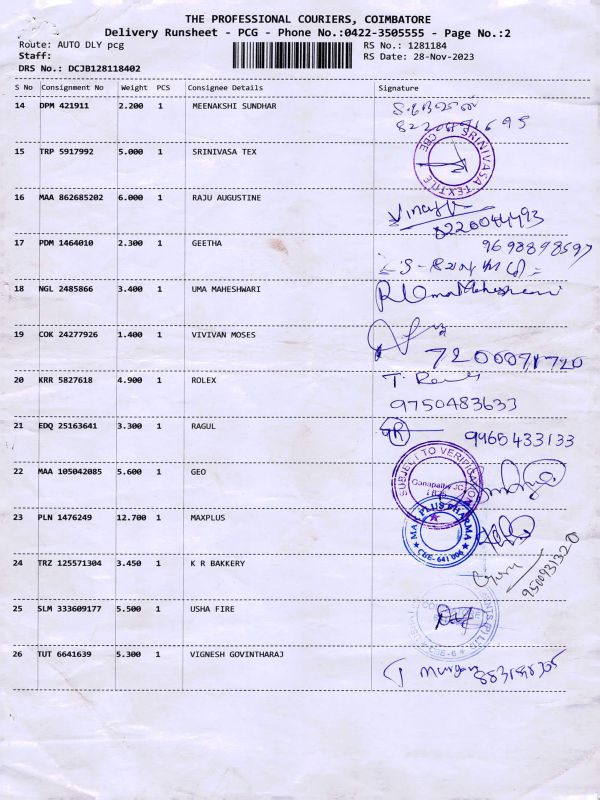 THE PROFESSIONAL COURIERS, COIMBATORE
Delivery Runsheet - PCG - Phone No.:0422-3505555 - Page No.:2
Route: AUTO DLY pcg RS No.: 1281184
Staff: RS Date: 28-Nov-2023
DRS No.: DCJB128118402
S No Consignment No Weight PCS Consignee Details Signature
14 DPM 421911 2.200 1 MEENAKSHI SUNDHAR
15 TRP 5917992 5.000 1 SRINIVASA TEX
SRINIVASA TEXTILE CBE
16 MAA 862685202 6.000 1 RAJU AUGUSTINE
8226044493
17 PDM 1464010 2.300 1 GEETHA
9698898597
18 NGL 2485866 3.400 1 UMA MAHESHWARI
19 COK 24277926 1.400 1 VIVIVAN MOSES
7200071720
20 KRR 5827618 4.900 1 ROLEX
9750483633
21 EDQ 25163641 3.300 1 RAGUL
GR 9965433133
22 MAA 105042085 5.600 1 GEO
SUBJECT TO VERIFICATION
Ganapathy
23 PLN 1476249 12.700 1 MAXPLUS
MAX PLUS PHARMA
CBE - 641 006
24 TRZ 125571304 3.450 1 K R BAKKERY
9500931320
25 SLM 333609177 5.500 1 USHA FIRE
CBE-6
26 TUT 6641639 5.300 1 VIGNESH GOVINTHARAJ